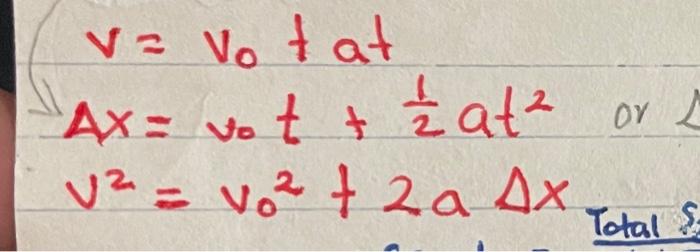 v = v₀ + at
Δx = v₀ t + ½ at² or
v² = v₀² + 2a Δx
Total